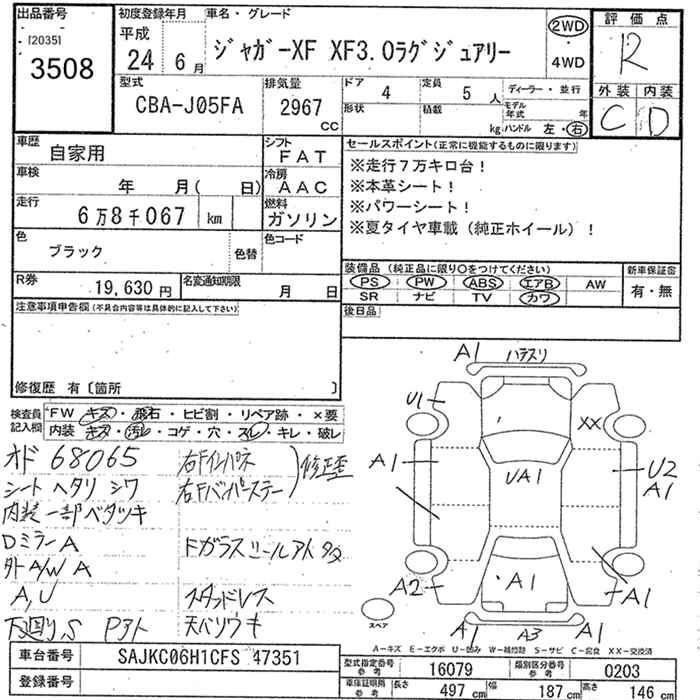 出品番号
[2035]
3508
初度登録年月
平成
24 6月
車名・グレード
ジャガーXF XF3.0ラグジュアリー
2WD
・
4WD
評価点
R
外装 内装
C D
型式
CBA-J05FA
排気量
2967
cc
ドア 4
形状
定員 5 人
積載 kg
ディーラー・並行
モデル年式 年
ハンドル 左・右
車歴
自家用
シフト
FAT
車検
年 月( 日)
冷房
AAC
走行
6万8千067 km
燃料
ガソリン
色
ブラック
色替
色コード
R券
19,630円
名変通知期限
月 日
セールスポイント(正常に機能するものに限ります)
※走行7万キロ台!
※本革シート!
※パワーシート!
※夏タイヤ車載(純正ホイール)!
装備品(純正品に限り〇をつけてください)
PS PW ABS エアB AW
SR ナビ TV カワ
新車保証書
有・無
後日品
注意事項申告欄(不具合内容等は具体的に記入して下さい)
修復歴 有〔箇所 〕
検査員記入欄
FW キズ・飛石・ヒビ割・リペア跡・×要
内装 キズ・汚レ・コゲ・穴・スレ・キレ・破レ
オド 68065
シート ヘタリ シワ
内装一部ベタツキ
Dミラー A
外A/W A
A,U
下廻り,S Pアト
右Fインパネ
右Fバンパーステー
修正歴
Fガラス
スタッドレス
天バリウキ
A1 ハナスリ
U1
XX
A1
UA1
U2
A1
A2
A1
A1
A1 A3 A1
スペア
A-キズ E-エクボ U-凹み W-補修跡 S-サビ C-腐食 XX-交換済
車台番号
SAJKC06H1CFS 47351
登録番号
型式指定番号 参考
16079
類別区分番号 参考
0203
車庫証明用 参考
長さ 497 cm
幅 187 cm
高さ 146 cm